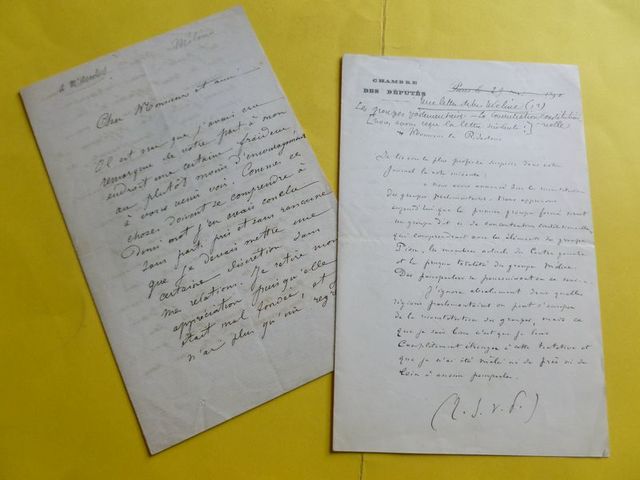 Méline
Cher Monsieur et ami,
Il est vrai que j'avais cru
remarquer de votre part à mon
endroit une certaine froideur
ou plutôt moins d'encouragement
à vous venir voir. Comme ces
choses doivent se comprendre à
demi mot j'en avais conclu
sans parti pris et sans rancune
que je devais mettre une
certaine discrétion dans
mes relations. Je retire mon
appréciation puisqu'elle
était mal fondée, et
n'ai plus qu'un
CHAMBRE
DES DÉPUTÉS
Paris le
Une lettre de M. Méline
Les groupes parlementaires - La concentration
Nous avons reçu la lettre suivante :
Monsieur le Rédacteur
Je lis avec la plus profonde surprise dans votre
journal la note suivante :
" Nous avons annoncé la reconstitution
des groupes parlementaires. Nous apprenons
aujourd'hui que le premier groupe formé serait
un groupe dit de concentration
qui comprendrait avec les éléments du groupe
les membres actuels du Centre gauche
et la presque totalité du groupe Méline.
Des pourparlers se poursuivent en ce
J'ignore absolument dans quelles
régions parlementaires on peut s'occuper
de la reconstitution des groupes, mais ce
que je sais bien c'est que je suis
complètement étranger à cette tentative et
que je n'ai été mêlé ni de près ni de
loin à aucun pourparler.
(T. S. V. P.)